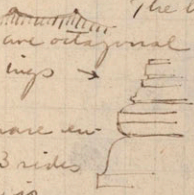 The
are octagonal
ings
are en
3 sides